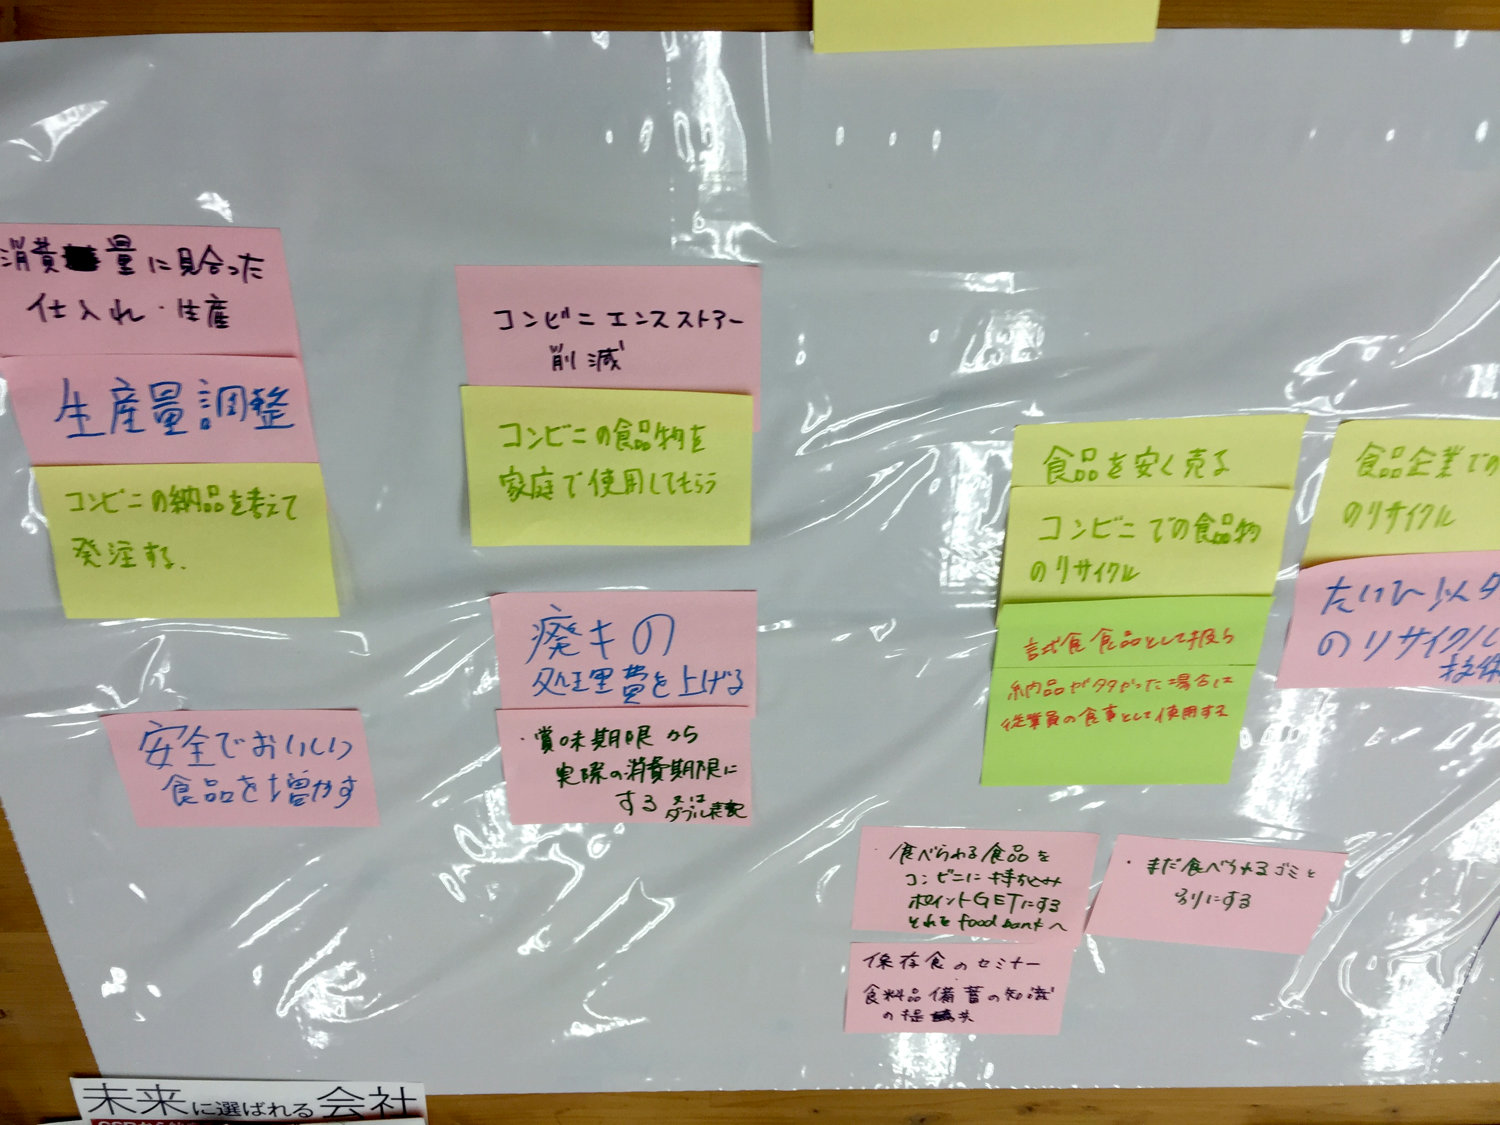 消費量に見合った
仕入れ・生産
生産量調整
コンビニの納品を考えて
発注する.
安全でおいしい
食品を増やす
コンビニエンスストアー
削減
コンビニの食品物を
家庭で使用してもらう
廃キの
処理費を上げる
・賞味期限から
実際の消費期限に
する 又は
ダブル表記
食品を安く売る
コンビニでの食品物
のリサイクル
試食食品として扱う
納品が多かった場合は
従業員の食事として使用する
食品企業での
のリサイクル
たいひ以外
のリサイクル
・食べられる食品を
コンビニに持ち込み
ポイントGETにする
それを food bank へ
・まだ食べられるゴミと
別にする
保存食のセミナー
食料品備蓄の知識
の提供
未来に選ばれる会社